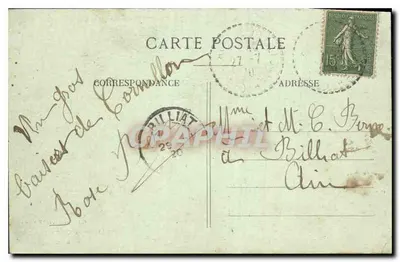 CARTE POSTALE
CORRESPONDANCE
ADRESSE
Un gros
baiser de Cornillon
Rose
BILLIAT
Mme et M. C.
à Billiat
Ain
15